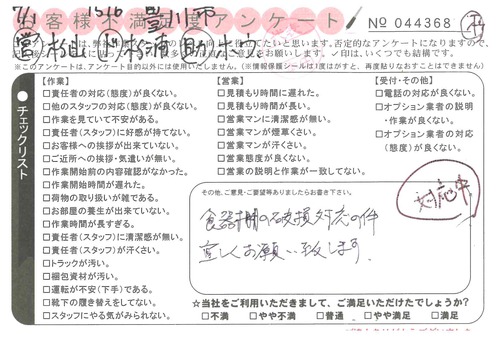 7/1 1546 豊川市
お客様不満足度アンケート No 044368
営 松山 助
※このアンケートは、アンケート目的以外には使用いたしません。(※情報保護シールは1度はがすと、再度貼りなおすことはできません)
チェックリスト
【作業】
□責任者の対応(態度)が良くない。
□他のスタッフの対応(態度)が良くない。
□作業を見ていて不安がある。
□責任者(スタッフ)に好感が持てない。
□お客様への挨拶が出来ていない。
□ご近所への挨拶・気遣いが無い。
□作業開始前の内容確認がなかった。
□作業開始時間が遅れた。
□荷物の取り扱いが雑である。
□お部屋の養生が出来ていない。
□作業時間が長すぎる。
□責任者(スタッフ)に清潔感が無い。
□責任者(スタッフ)が汗くさい。
□トラックが汚い。
□梱包資材が汚い。
□運転が不安(下手)である。
□靴下の履き替えをしてない。
□スタッフにやる気がみられない。
【営業】
□見積もり時間に遅れた。
□見積もり時間が長い。
□営業マンに清潔感が無い。
□営業マンが煙草くさい。
□営業マンが汗くさい。
□営業態度が良くない。
□営業の説明と作業が一致してない。
【受付・その他】
□電話の対応が良くない。
□オプション業者の説明
・作業が良くない。
□オプション業者の対応
(態度)が良くない。
その他、ご意見・ご要望等ありましたらお書き下さい。
食器棚の破損対応の件
宜しくお願い致します。
対応中
☆当社をご利用いただきまして、ご満足いただけたでしょうか?
□不満 □やや不満 □普通 □やや満足 □満足